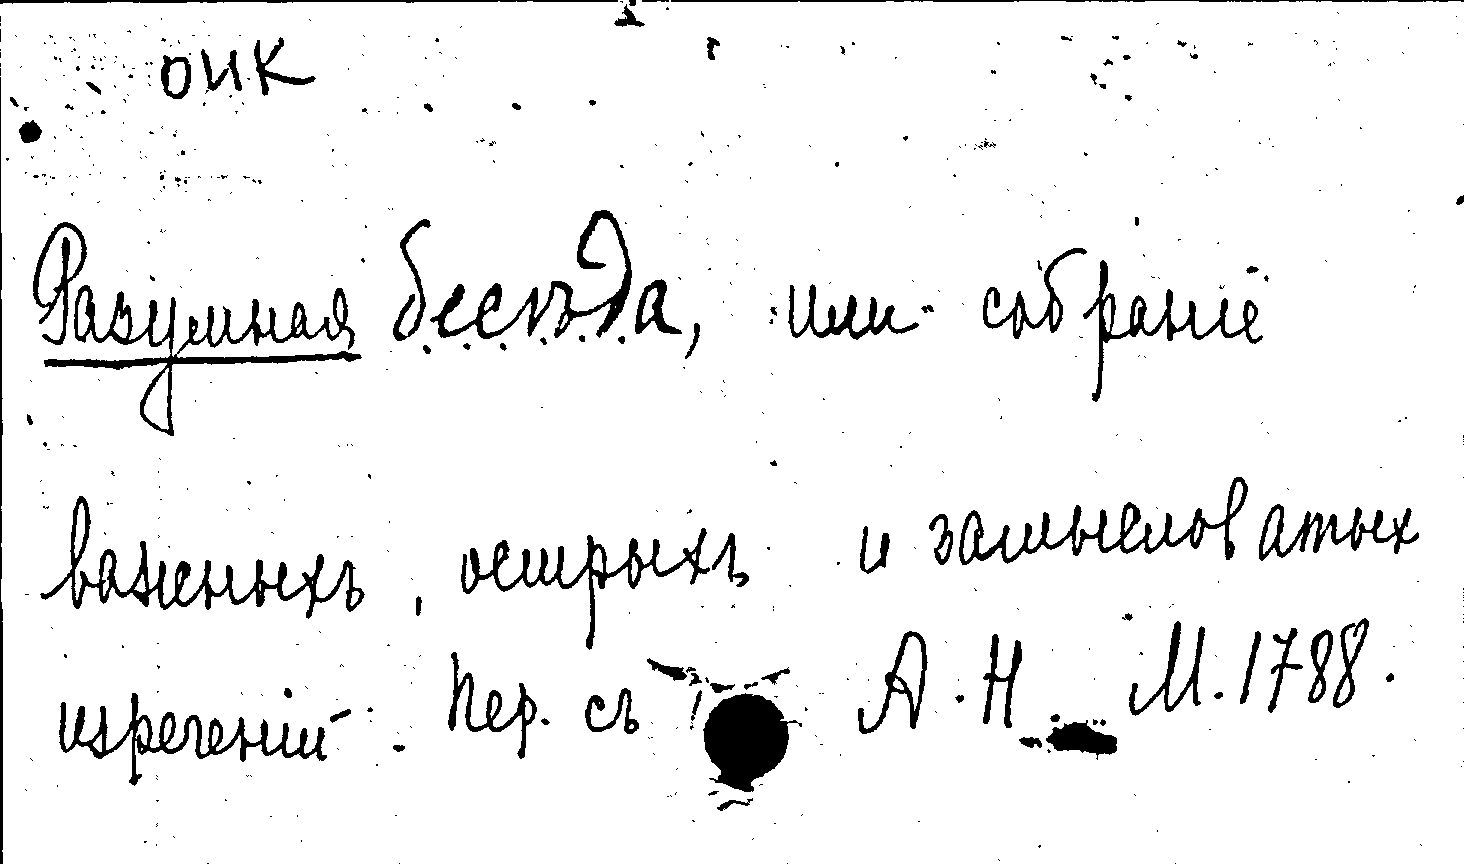 ОИК
Разумная бесѣда, или собранiе
важныхъ, острыхъ и замысловатых
изреченiй. Пер. съ А. Н. М. 1788.